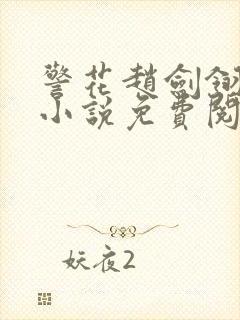 警花趙劍翎
小說免費閱
妖夜2